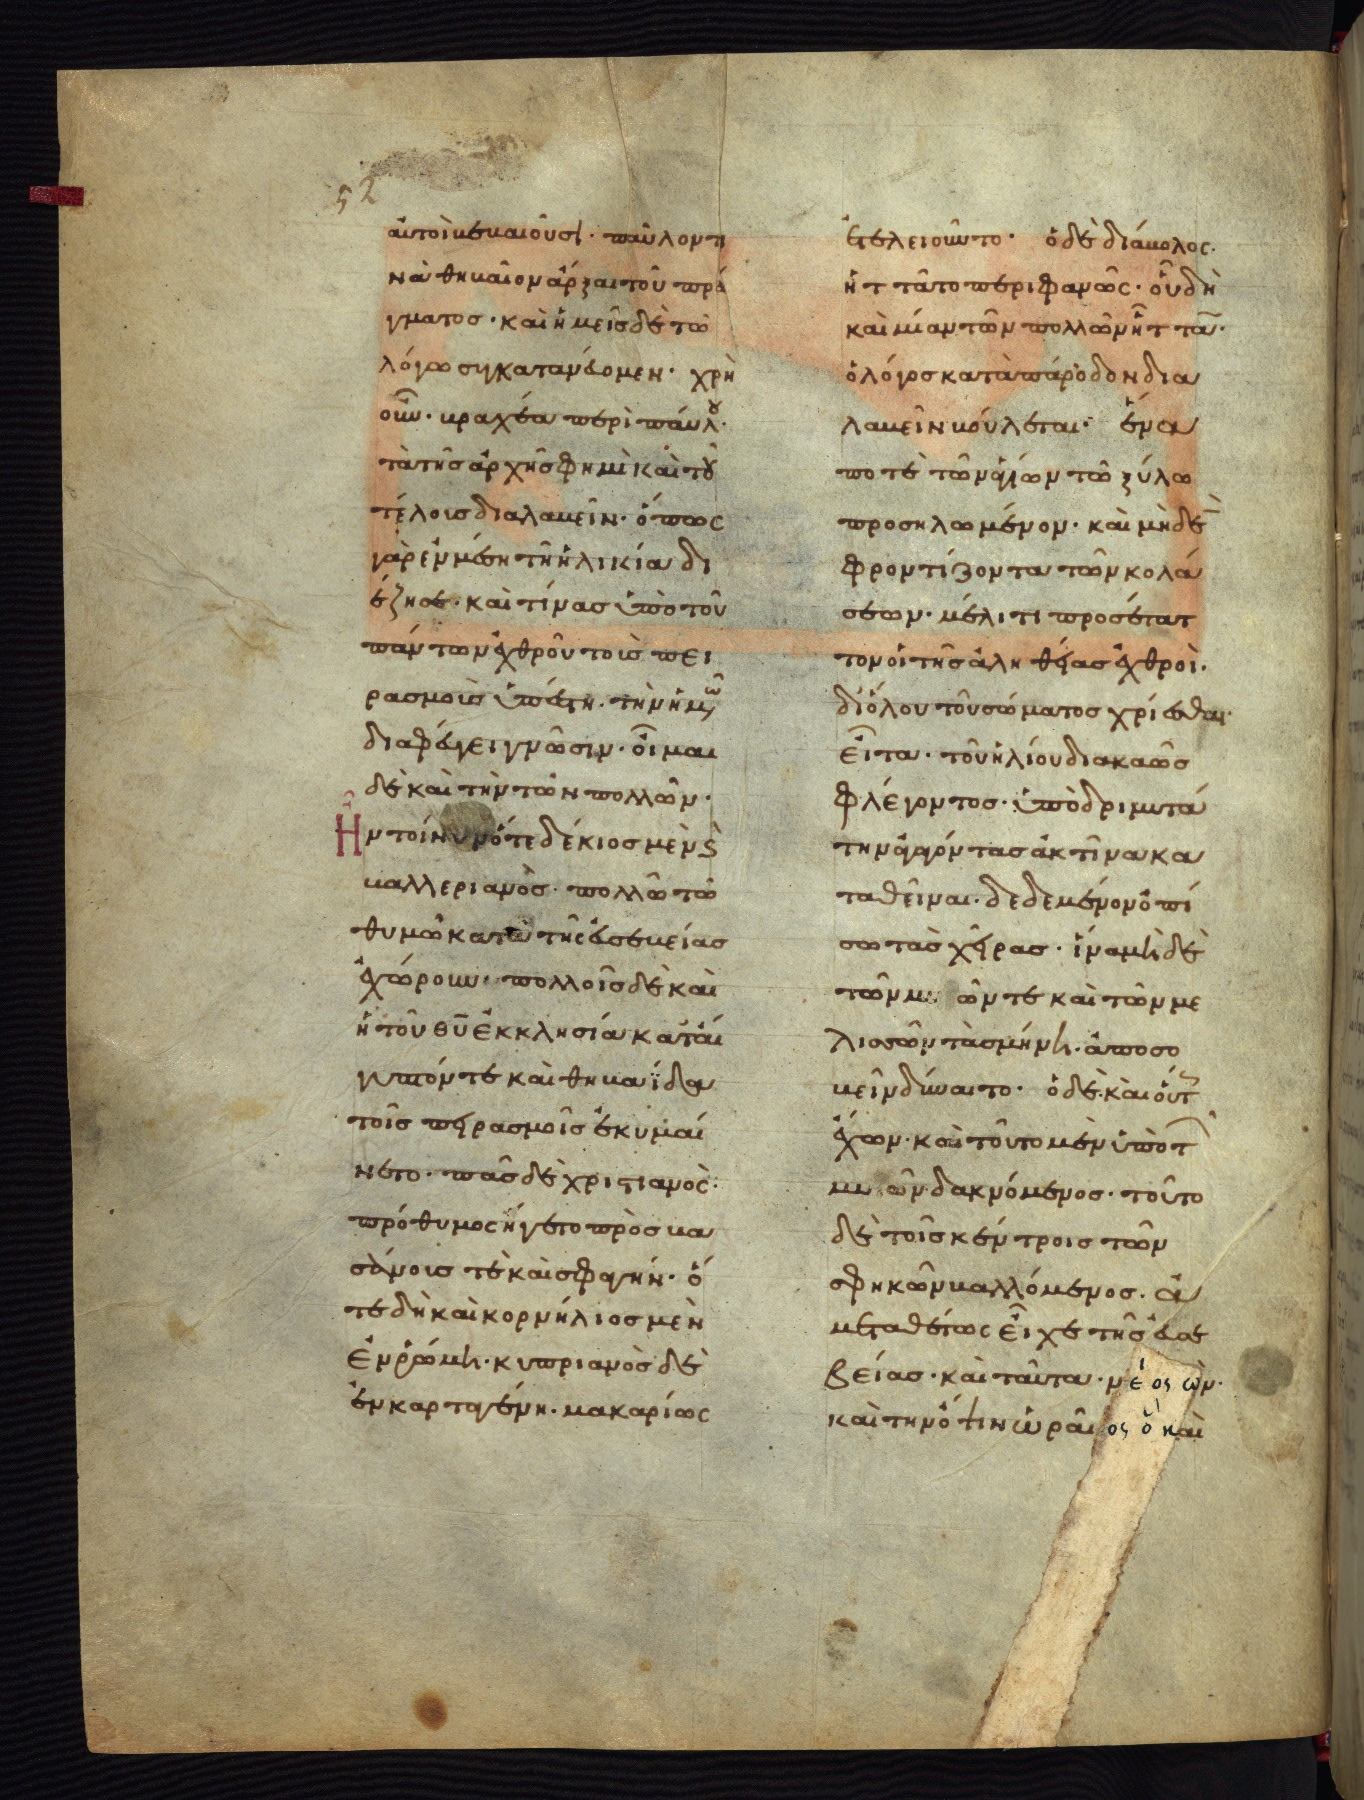 52
αὐτοὶ βεβαιοῦσι· παῦλον τὸ
ν θηβαῖον ἄρξαι τοῦ πρά
γματος· καὶ ἡμεῖς δὲ τῶ
λόγω συγκατανεύομεν· χρὴ
οὖν· βραχέα περὶ παύλου·
τὰ τῆς ἀρχῆς φημὶ καὶ τοῦ
τέλους διαλαβεῖν· ὅπως
γὰρ ἐν μέση τῆ ἡλικία δι
έζησε· καὶ τίνας ὑπὸ τοῦ
πάντων ἐχθροῦ τοὺς πει
ρασμοὺς ὑπέστη· τὴν ἡμῶν
διαφεύγει γνῶσιν· οἶμαι
δὲ καὶ τὴν τῶν πολλῶν·
Ἦν τοίνυν ὅτε δέκιος μὲν καὶ
βαλλεριανὸς· πολλῶ τῶ
θυμῶ κατὰ τῆς εὐσεβείας
ἐχώρουν· πολλοῖς δὲ καὶ
ἡ τοῦ θῦ ἐκκλησία κατ' αἴ
γυπτόν τε καὶ θηβαΐδα
τοῖς πειρασμοῖς ἐκυμαί
νετο· πᾶς δὲ χριστιανὸς·
πρόθυμος ἤγετο πρὸς βα
σάνους τὲ καὶ σφαγήν· ὅ
τε δὴ καὶ κορνήλιος μὲν
ἐν ῥώμη· κυπριανὸς δὲ
ἐν καρταγένη· μακαρίως
ἐτελειοῦντο· ὁ δὲ διάβολος·
ἥττᾶτο περιφανῶς· οὗ δὴ
καὶ μίαν τῶν πολλῶν ἧτταν·
ὁ λόγος κατὰ πάροδον δια
λαβεῖν βούλεται· ἕνα
ποτὲ τῶν ἁγίων τῶ ξύλω
προσηλωμένον· καὶ μὴδὲν
φροντίζοντα τῶν κολά
σεων· μέλιτι προσέταττον
οἱ τῆς ἀληθείας ἐχθροὶ·
δι' ὅλου τοῦ σώματος χρίεσθαι·
εἶτα· τοῦ ἡλίου διακαῶς
φλέγοντος· ὑπὸ δριμυτά
την ἄγοντας ἀκτῖνα κα
ταθεῖναι· δεδεμένον ὀπί
σω τὰς χεῖρας· ἵνα μὴ δὲ
τῶν μυιῶν τε καὶ τῶν με
λισσῶν τὰ σμήνη· ἀποσο
βεῖν δύναιτο· ὁ δὲ καὶ οὕτως
ἔχων· καὶ τοῦτο μὲν ὑπὸ τῶν
μυιῶν δακνόμενος· τοῦτο
δὲ τοῖς κέντροις τῶν
σφηκῶν βαλλόμενος· ἀ
μεταθέτως εἶχε τῆς εὐσε
βείας· καὶ ταῦτα· νέος ὢν·
καὶ τὴν ὄψιν ὡραῖος ὃ καὶ